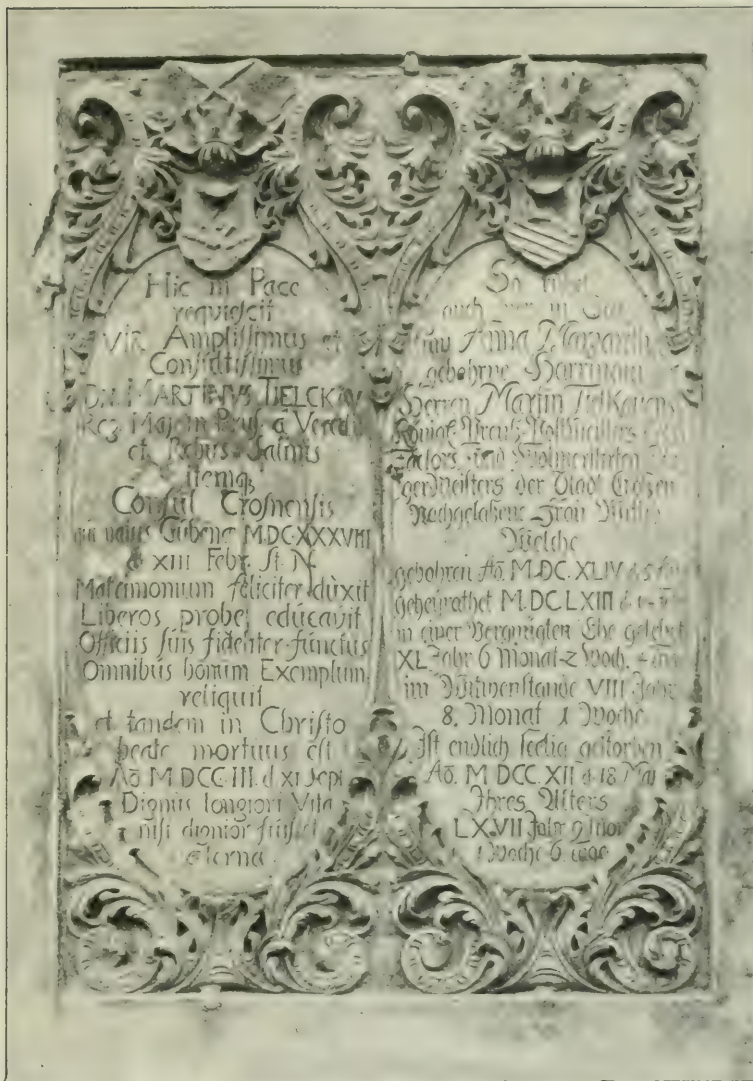 Hic in Pace
requiescit
VIR Amplissimus et
Consultissimus
DN. MARTINUS TIELCKAU
Reg. Maj. in Prus. á
et Rebus Salinis
itemq
Consul Crosnensis
qui natus Gubenæ M.DC.XXXVIII
d XIII Febr. St. N.
Matrimonium feliciter duxit
Liberos probe educavit
Officiis suis fidenter functus
Omnibus bonum Exemplum
reliquit
et tandem in Christo
beate mortuus est
Aō M DCC III. d XI Sept
Dignus longiori Vita
nisi dignior fuisset
æterna
So ruhet
auch in
Frau Anna Margareth
gebohrne
Herren Martin Tielkauens
Königl. Preuß.
Factors und
germeisters der Stadt Croßen
Nachgelaßene Frau
Welche
gebohren Aō. M.DC.XLIV d. 5
geheyrathet M.DC LXIII d.
in einer Vergnügten Ehe gelebet
XL Jahr 6 Monat 2 Woch.
im Witwenstande VIII Jahr
8. Monat 1 Woche
Ist endlich seelig gestorben
Aō. M DCC.XII d. 18 Mai
Ihres Alters
LXVII Jahr 9 Mon
1 Woche 6